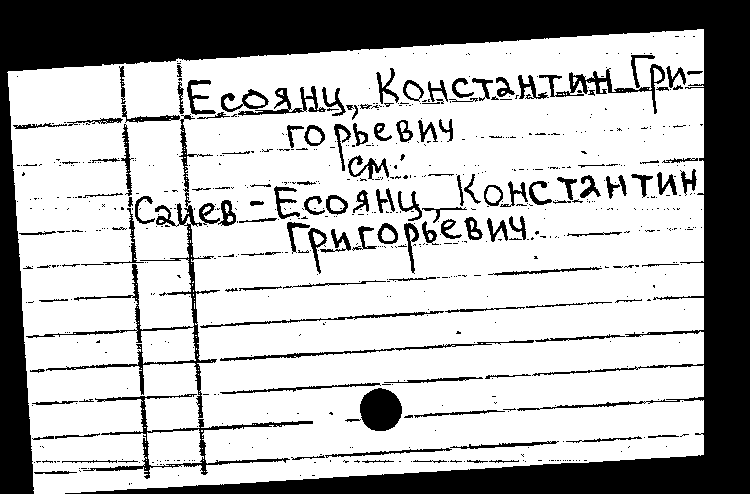 Есоянц, Константин Гри-
горьевич
см.:
Саиев-Есоянц, Константин
Григорьевич.